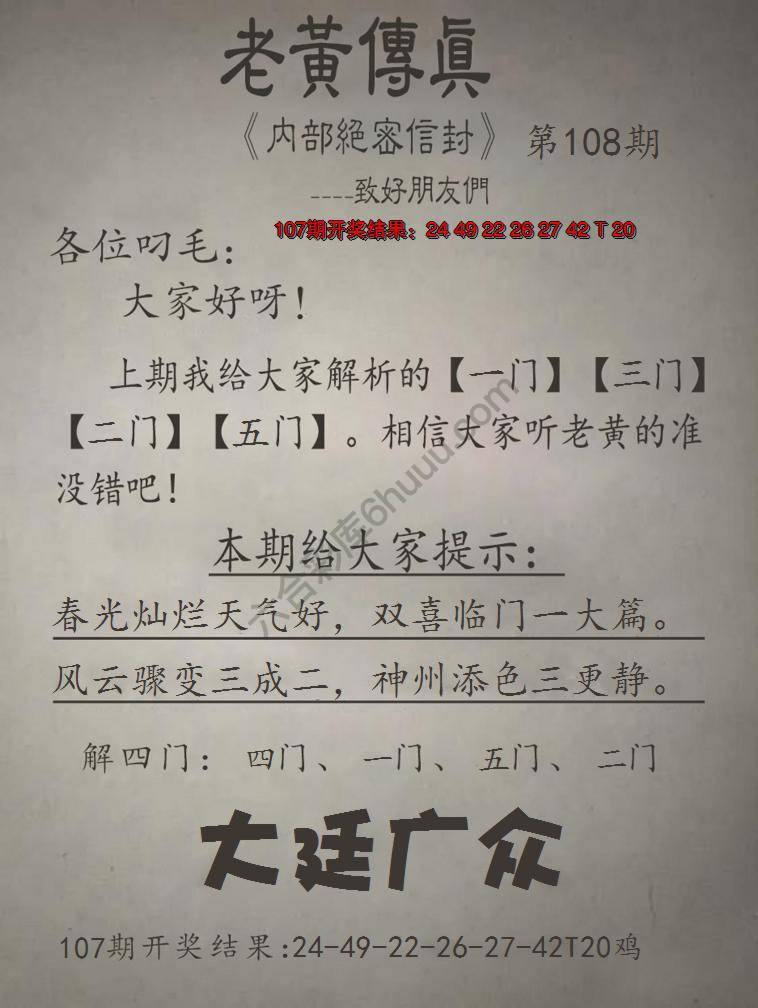 老黃傳眞
《内部絕密信封》 第108期
----致好朋友們
107期开奖结果：24 49 22 26 27 42 T 20
各位叼毛：
大家好呀！
上期我给大家解析的【一门】【三门】
【二门】【五门】。相信大家听老黄的准
没错吧！
本期给大家提示：
春光灿烂天气好，双喜临门一大篇。
风云骤变三成二，神州添色三更静。
解四门： 四门、 一门、 五门、 二门
大廷广众
107期开奖结果:24-49-22-26-27-42T20鸡
六合彩库6huuu.com